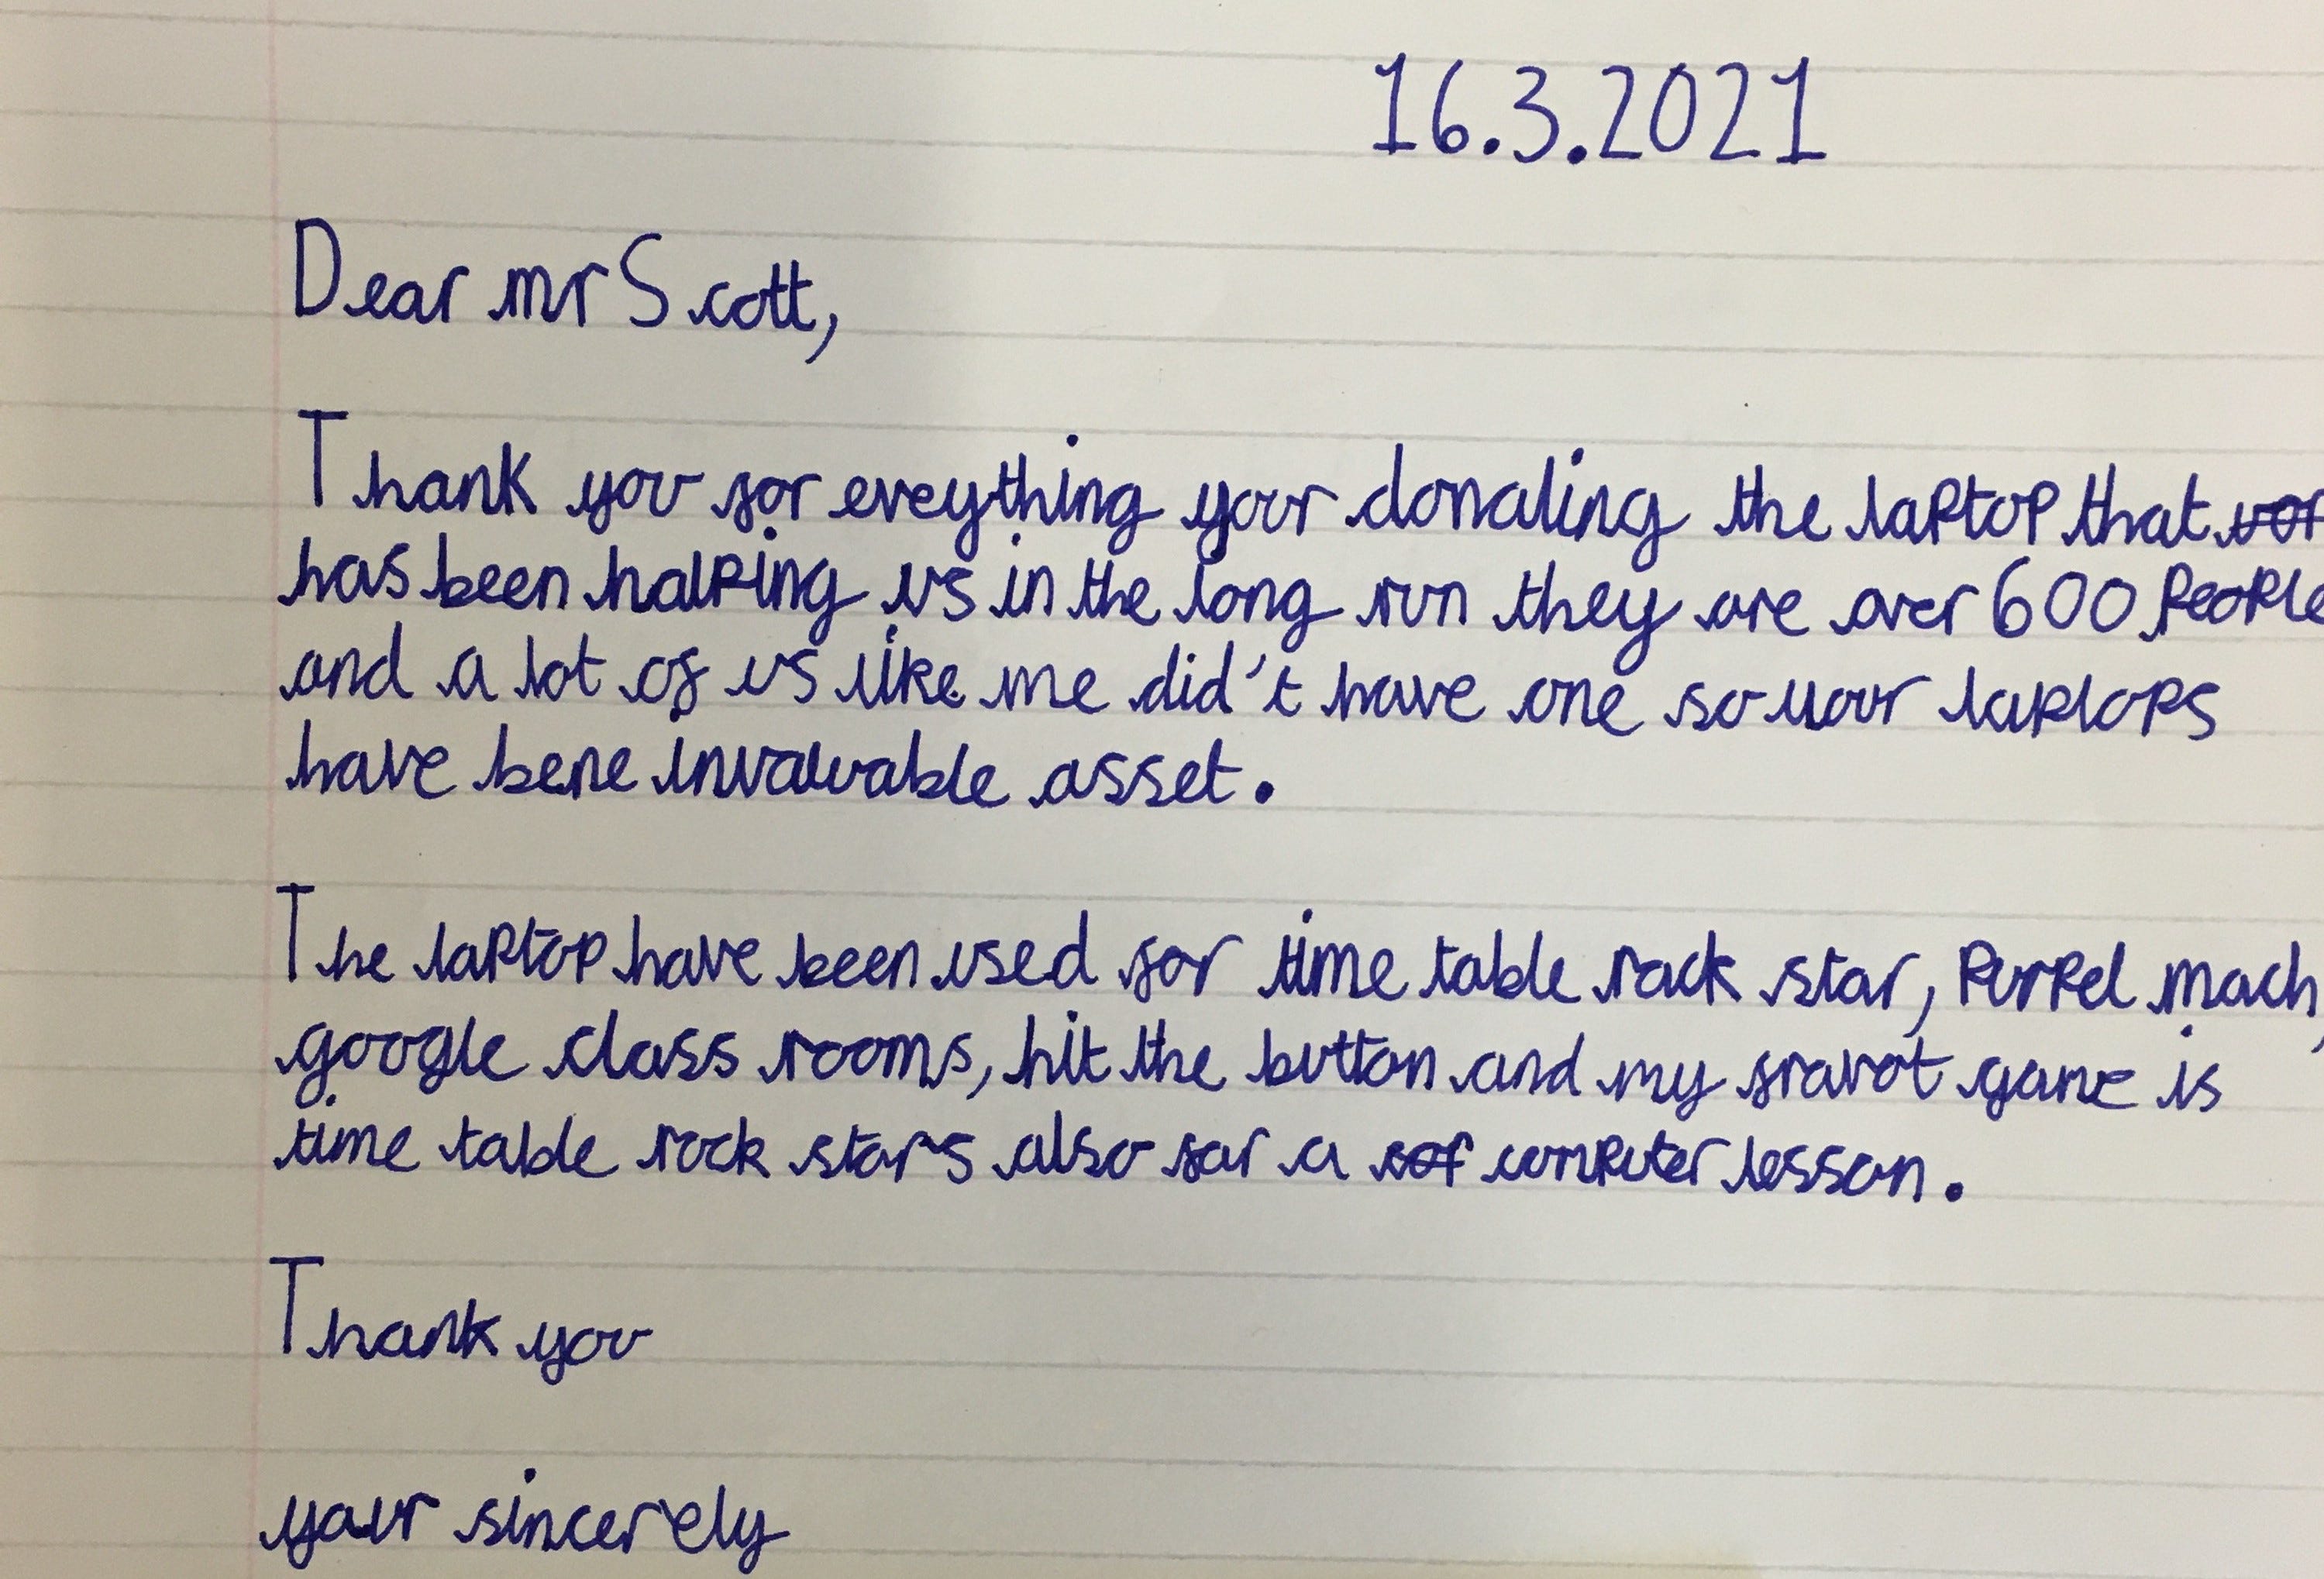 16.3.2021
Dear mr Scott,
Thank you for eveything your donaling the laptop that
has been halping us in the long run they are over 600 people
and a lot of us like me did't have one so your laplops
have bene invaluable asset.
The laptop have been used for time table rack star, Purpel mach,
google class rooms, hit the button and my fravot game is
time table rock stars also far a computer lesson.
Thank you
your sincerely